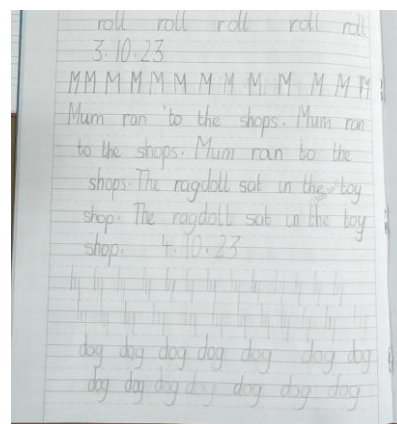 roll roll roll roll roll
3.10.23
M M M M M M M M M M M M M
Mum ran to the shops. Mum ran
to the shops. Mum ran to the
shops. The ragdoll sat in the toy
shop. The ragdoll sat in the toy
shop. 4.10.23
dog dog dog dog dog dog dog
dog dog dog dog dog dog dog